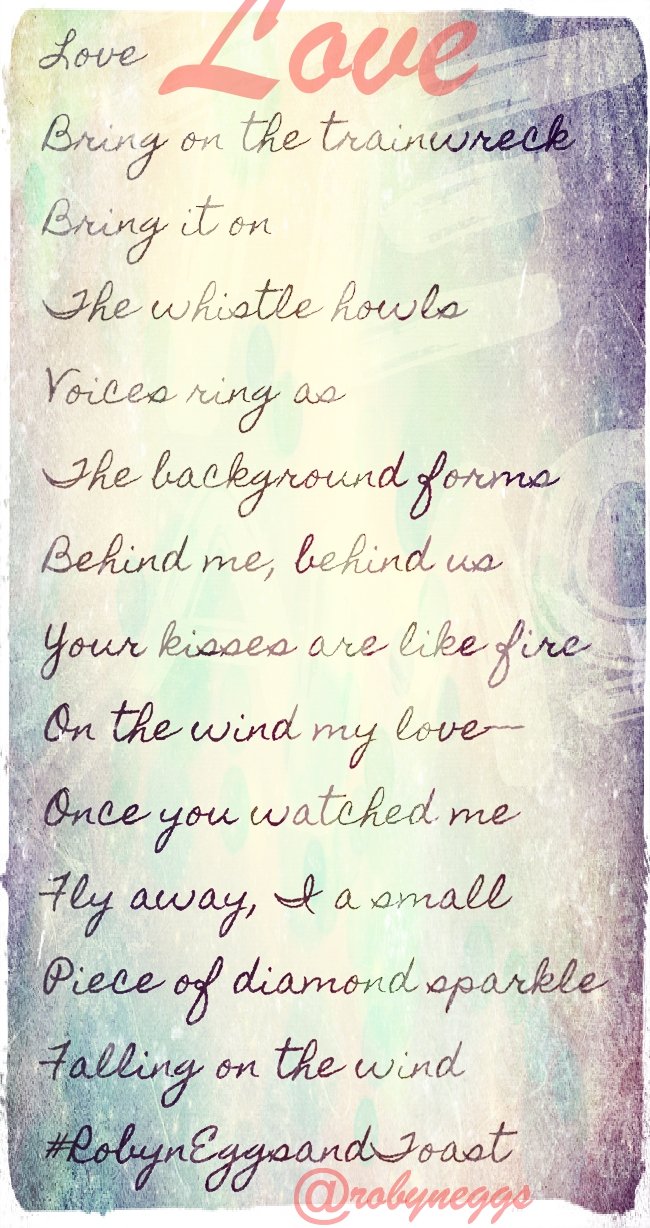 Love Love
Bring on the trainwreck
Bring it on
The whistle howls
Voices ring as
The background forms
Behind me, behind us
Your kisses are like fire
On the wind my love—
Once you watched me
Fly away, I a small
Piece of diamond sparkle
Falling on the wind
#RobynEggsandToast
@robyneggs